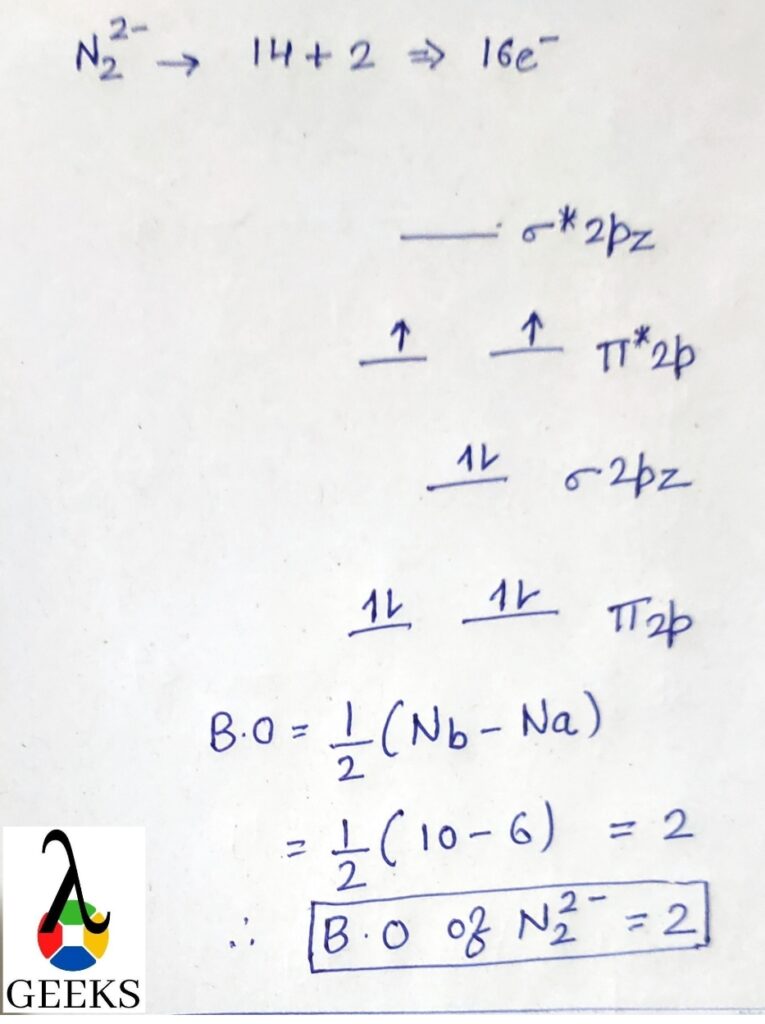 N₂²⁻ → 14 + 2 ⇒ 16e⁻
σ*2pz
↑ ↑ π*2p
↿⇂ σ2pz
↿⇂ ↿⇂ π2p
B.O = 1/2 (Nb - Na)
= 1/2 (10 - 6) = 2
∴ B.O of N₂²⁻ = 2
λ
GEEKS